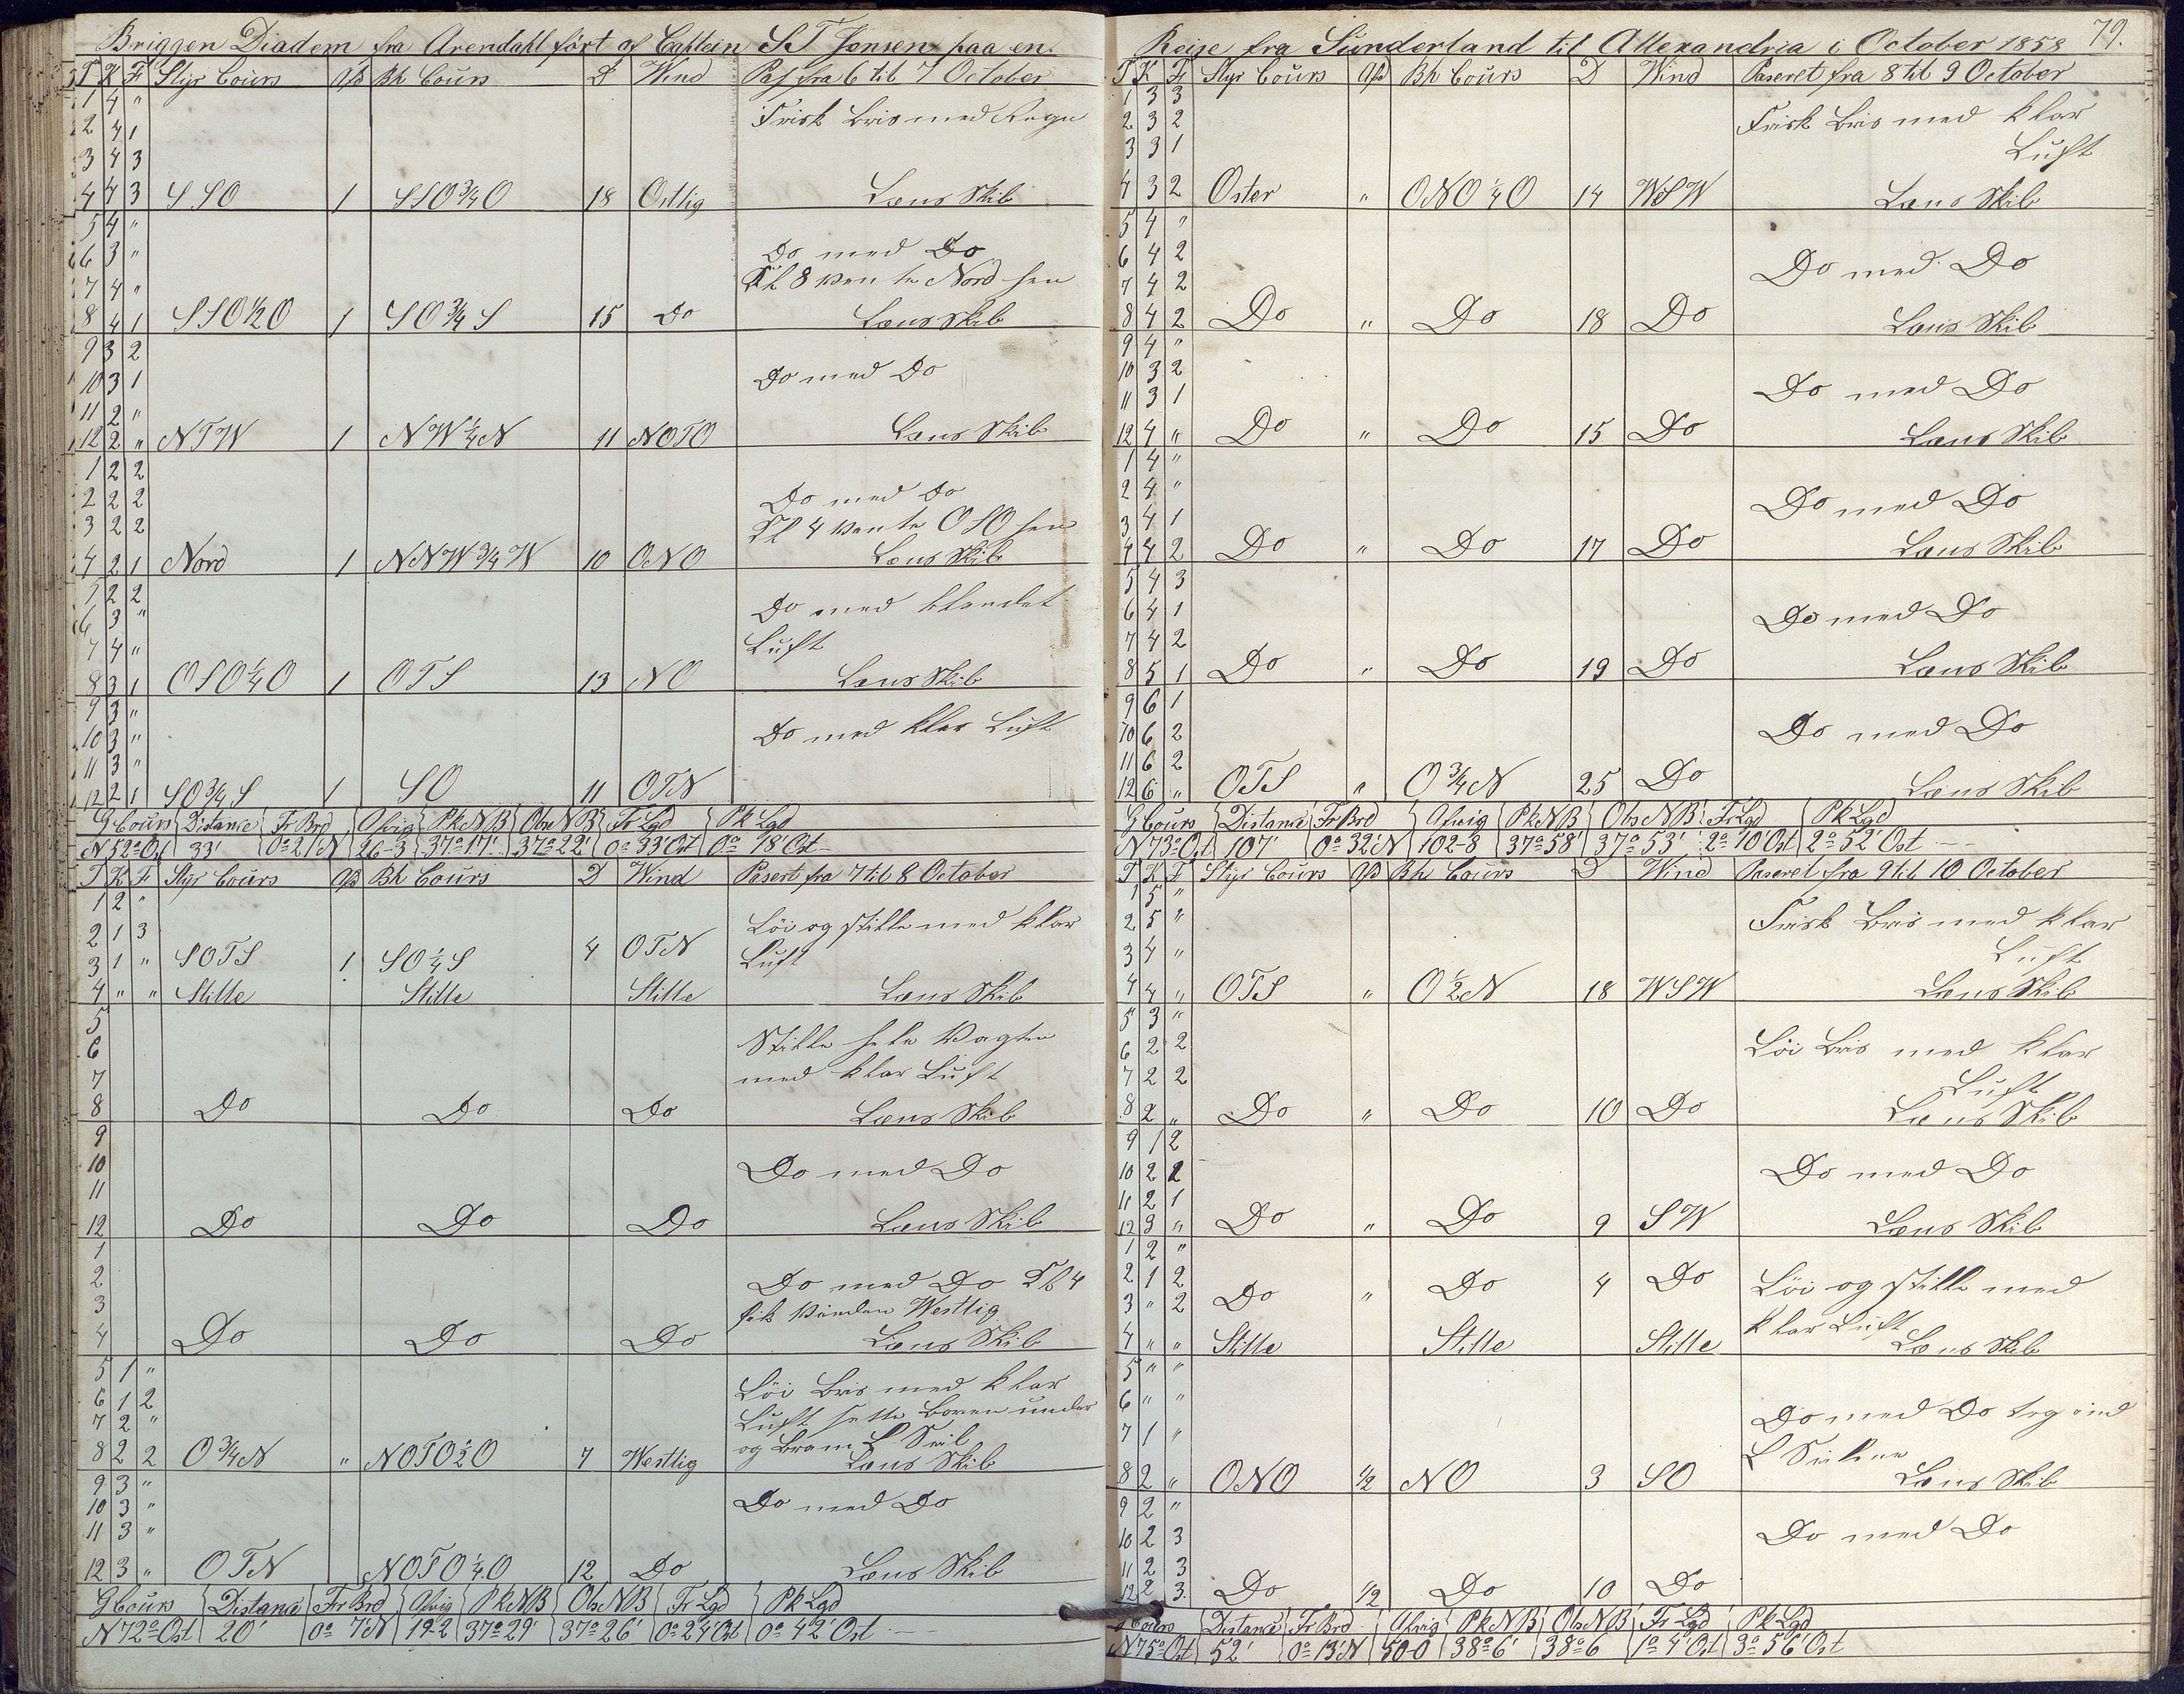 Briggen Diadem fra Arendahl ført af Captein S T Jensen paa en
T K F Styr Cours Afd Bh Cours D Wind Pas fra 6 til 7 October
1 4 "
2 4 1 Frisk Bris med Regn
3 4 3
4 4 3 SSO 1 SSO 3/4 O 18 Ostlig Læns Skib
5 4 "
6 3 " Do med Do
7 4 " Kl 8 vente Nord hen
8 4 1 SSO 1/2 O 1 SO 3/4 S 15 Do Læns Skib
9 3 2
10 3 1 Do med Do
11 2 "
12 2 " NTW 1 NW 1/4 N 11 NOTO Læns Skib
1 2 2
2 2 2 Do med Do
3 2 2 Kl 4 vente OSO hen
4 2 1 Nord 1 NNW 3/4 W 10 ONO Læns Skib
5 2 2
6 3 " Do med blandet
7 4 " Luft
8 3 1 OSO 1/4 O 1 OTS 13 NO Læns Skib
9 3 "
10 3 " Do med klar Luft
11 3 "
12 2 1 SO 3/4 S 1 SO 11 OTN
G Cours Distance Fr Brd Afvig Pk NB Obs NB Fr Lgd Pk Lgd
N 52° Ost 33' 0° 21 N 26-3 37° 17' 37° 22' 0° 33' Ost 0° 18' Ost
T K F Styr Cours Afd Bh Cours D Wind Pasert fra 7 til 8 October
1 2 "
2 1 3 Löi og stille med klar
3 1 " SOTS 1 SO 1/4 S 4 OTN Luft
4 " " Stille Stille Stille Læns Skib
5
6 Stille hele Vagten
7 med klar Luft
8 Do Do Do Læns Skib
9
10 Do med Do
11
12 Do Do Do Læns Skib
1
2 Do med Do Kl 4
3 fik Vinden Westlig
4 Do Do Do Læns Skib
5 1 "
6 1 2 Löi Bris med klar
7 2 " Luft sette Boven under
8 2 2 O 3/4 N " NOTO 1/2 O 7 Westlig og Bram L Seil
Læns Skib
9 3 "
10 3 " Do med Do
11 3 "
12 3 " OTN NOTO 1/4 O 12 Do Læns Skib
G Cours Distance Fr Brd Afvig Pk NB Obs NB Fr Lgd Pk Lgd
N 72° Ost 20' 0° 7' N 19-2 37° 29' 37° 26' 0° 24' Ost 0° 42' Ost
Reise fra Sunderland til Allexandria i October 1858 79.
T K F Styr Cours Afd Bh Cours D Wind Paseret fra 8 til 9 October
1 3 3
2 3 2 Frisk Bris med klar
3 3 1 Luft
4 3 2 Oster " ONO 1/4 O 14 WSW Læns Skib
5 4 "
6 4 2 Do med Do
7 4 2
8 4 2 Do " Do 18 Do Læns Skib
9 4 "
10 3 2
11 3 1 Do med Do
12 4 " Do " Do 15 Do Læns Skib
1 4 "
2 4 " Do med Do
3 4 1
4 4 2 Do " Do 17 Do Læns Skib
5 4 3
6 4 1 Do med Do
7 4 2
8 5 1 Do " Do 19 Do Læns Skib
9 6 1
10 6 2 Do med Do
11 6 2
12 6 " OTS " O 3/4 N 25 Do Læns Skib
G Cours Distance Fr Brd Afvig Pk NB Obs NB Fr Lgd Pk Lgd
N 73° Ost 107' 0° 32' N 102-8 37° 58' 37° 53' 2° 10' Ost 2° 52' Ost
T K F Styr Cours Afd Bh Cours D Wind Paseret fra 9 til 10 October
1 5 "
2 5 " Frisk Bris med klar
3 4 " Luft
4 4 " OTS " O 1/2 N 18 WSW Læns Skib
5 3 "
6 2 2 Löi Bris med klar
7 2 2 Luft
8 2 " Do " Do 10 Do Læns Skib
9 1 2
10 2 2 Do med Do
11 2 1
12 3 " Do " Do 9 SW Læns Skib
1 2 "
2 1 2 Löi og stille med
3 " 2 Do " Do 4 Do klar Luft
4 " " Stille Stille Stille Læns Skib
5 " "
6 " "
7 1 " Do med Do tog ind
L Seilene
8 2 " ONO 1/2 NO 3 SO Læns Skib
9 2 "
10 2 3 Do med Do
11 2 3
12 2 3 Do 1/2 Do 10 Do
G Cours Distance Fr Brd Afvig Pk NB Obs NB Fr Lgd Pk Lgd
N 75° Ost 52' 0° 13' N 50-0 38° 6' 38° 6 1° 4' Ost 3° 56' Ost